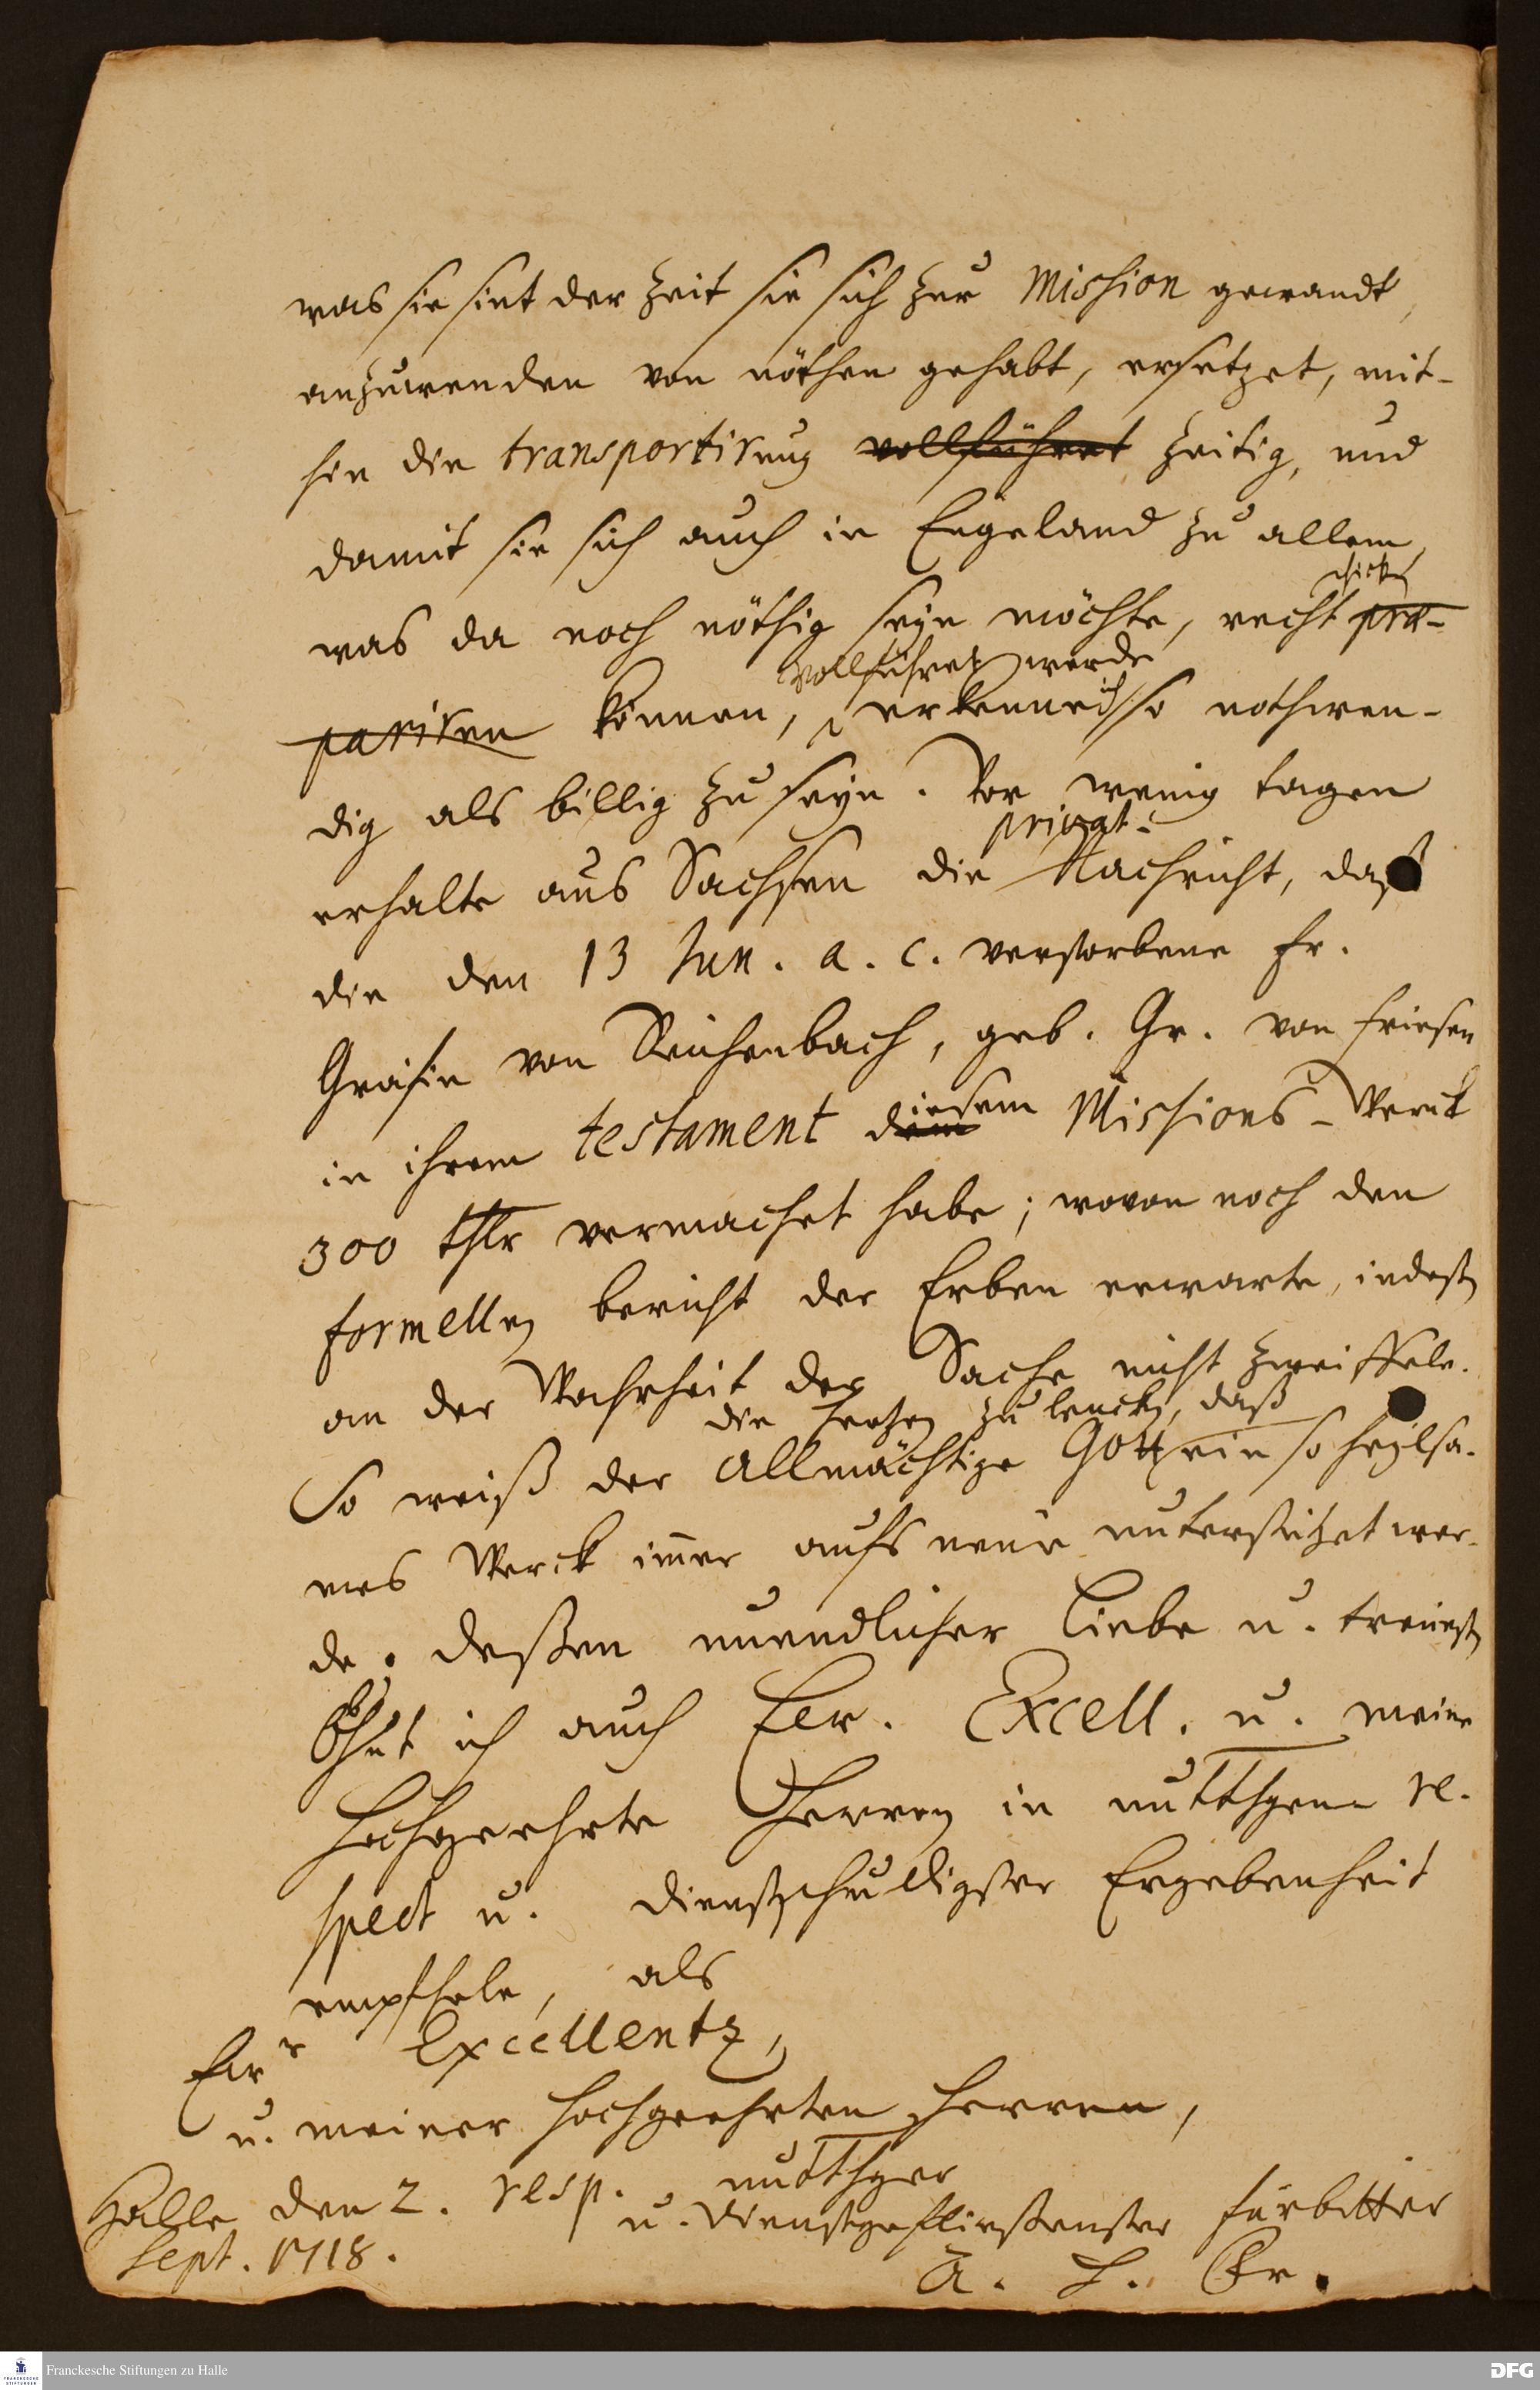 was sie sint der Zeit sie sich zur Mission gewandt,
anzuwenden von nöthen gehabt, ersetzet, mit-
hin die transportirung vollführet zeitig, und
damit sie sich auch in Engeland zu allem,
schicken
was da noch nöthig seyn möchte, recht præ-
vollführet werde
pariren können, erkenne ich so nothwen-
dig als billig zu seyn. Vor wenig tagen
privat-
erhalte aus Sachsen die Nachricht, daß
die den 13 Jun. a. c. verstorbene Fr.
Gräfin von Reichenbach, geb. Gr. von Friesen
in ihrem testament diesem Missions-Werck
300 thlr vermachet habe; wovon noch den
formellen bericht der Erben erwarte, indeßen
an der Wahrheit der Sache nicht zweiffele.
die Hertzen zu lencken, daß
So weiß der Allmächtige Gott ein so heylsa-
mes Werck immer aufs neue unterstützet wer-
de. Deßen unendlicher Liebe u. treuesten
Obhut ich auch Ew. Excell. u. meine
Hochgeehrte Herren in unterthgem re-
spect u. dienstschuldigster Ergebenheit
empfhele, als
Ewr Excellentz,
u. meiner Hochgeehrten Herren,
Halle den 2. resp. unterthger
u. dienstgefließenster fürbitter
Sept. 1718.
A. H. Fr.
Franckesche Stiftungen zu Halle
FRANCKESCHE
STIFTUNGEN
DFG